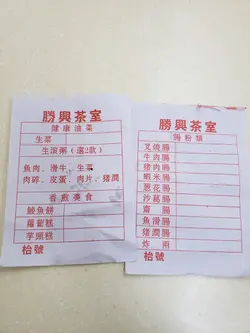 勝興茶室
健康油菜
生菜
生滾粥(選2款)
魚肉、滑牛、生菜
肉碎、皮蛋、肉片、豬潤
香煎美食
鯪魚餅
蘿蔔糕
芋頭糕
枱號
勝興茶室
腸粉類
叉燒腸
牛肉腸
豬肉腸
蝦米腸
蔥花腸
沙葛腸
齋腸
魚滑腸
豬潤腸
炸兩
枱號